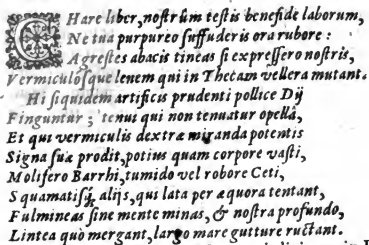 CHare liber, noſtrûm teſtis benefide laborum,
Ne tua purpureo ſuffuderis ora rubore :
Agreſtes abacis tineas ſi expreſſero noſtris,
Vermiculoſque lenem qui in Thecam vellera mutant.
Hi ſiquidem artificis prudenti pollice Dij
Finguntur ; tenui qui non tenuatur opellâ,
Et qui vermiculis dextræ miranda potentis
Signa ſuæ prodit, potius quam corpore vaſti,
Molifero Barrhi, tumido vel robore Ceti,
Squamatiſq; alijs, qui lata per æquora tentant,
Fulmineas ſine mente minas, & noſtra profundo,
Lintea quò mergant, largo mare gutture ructant.